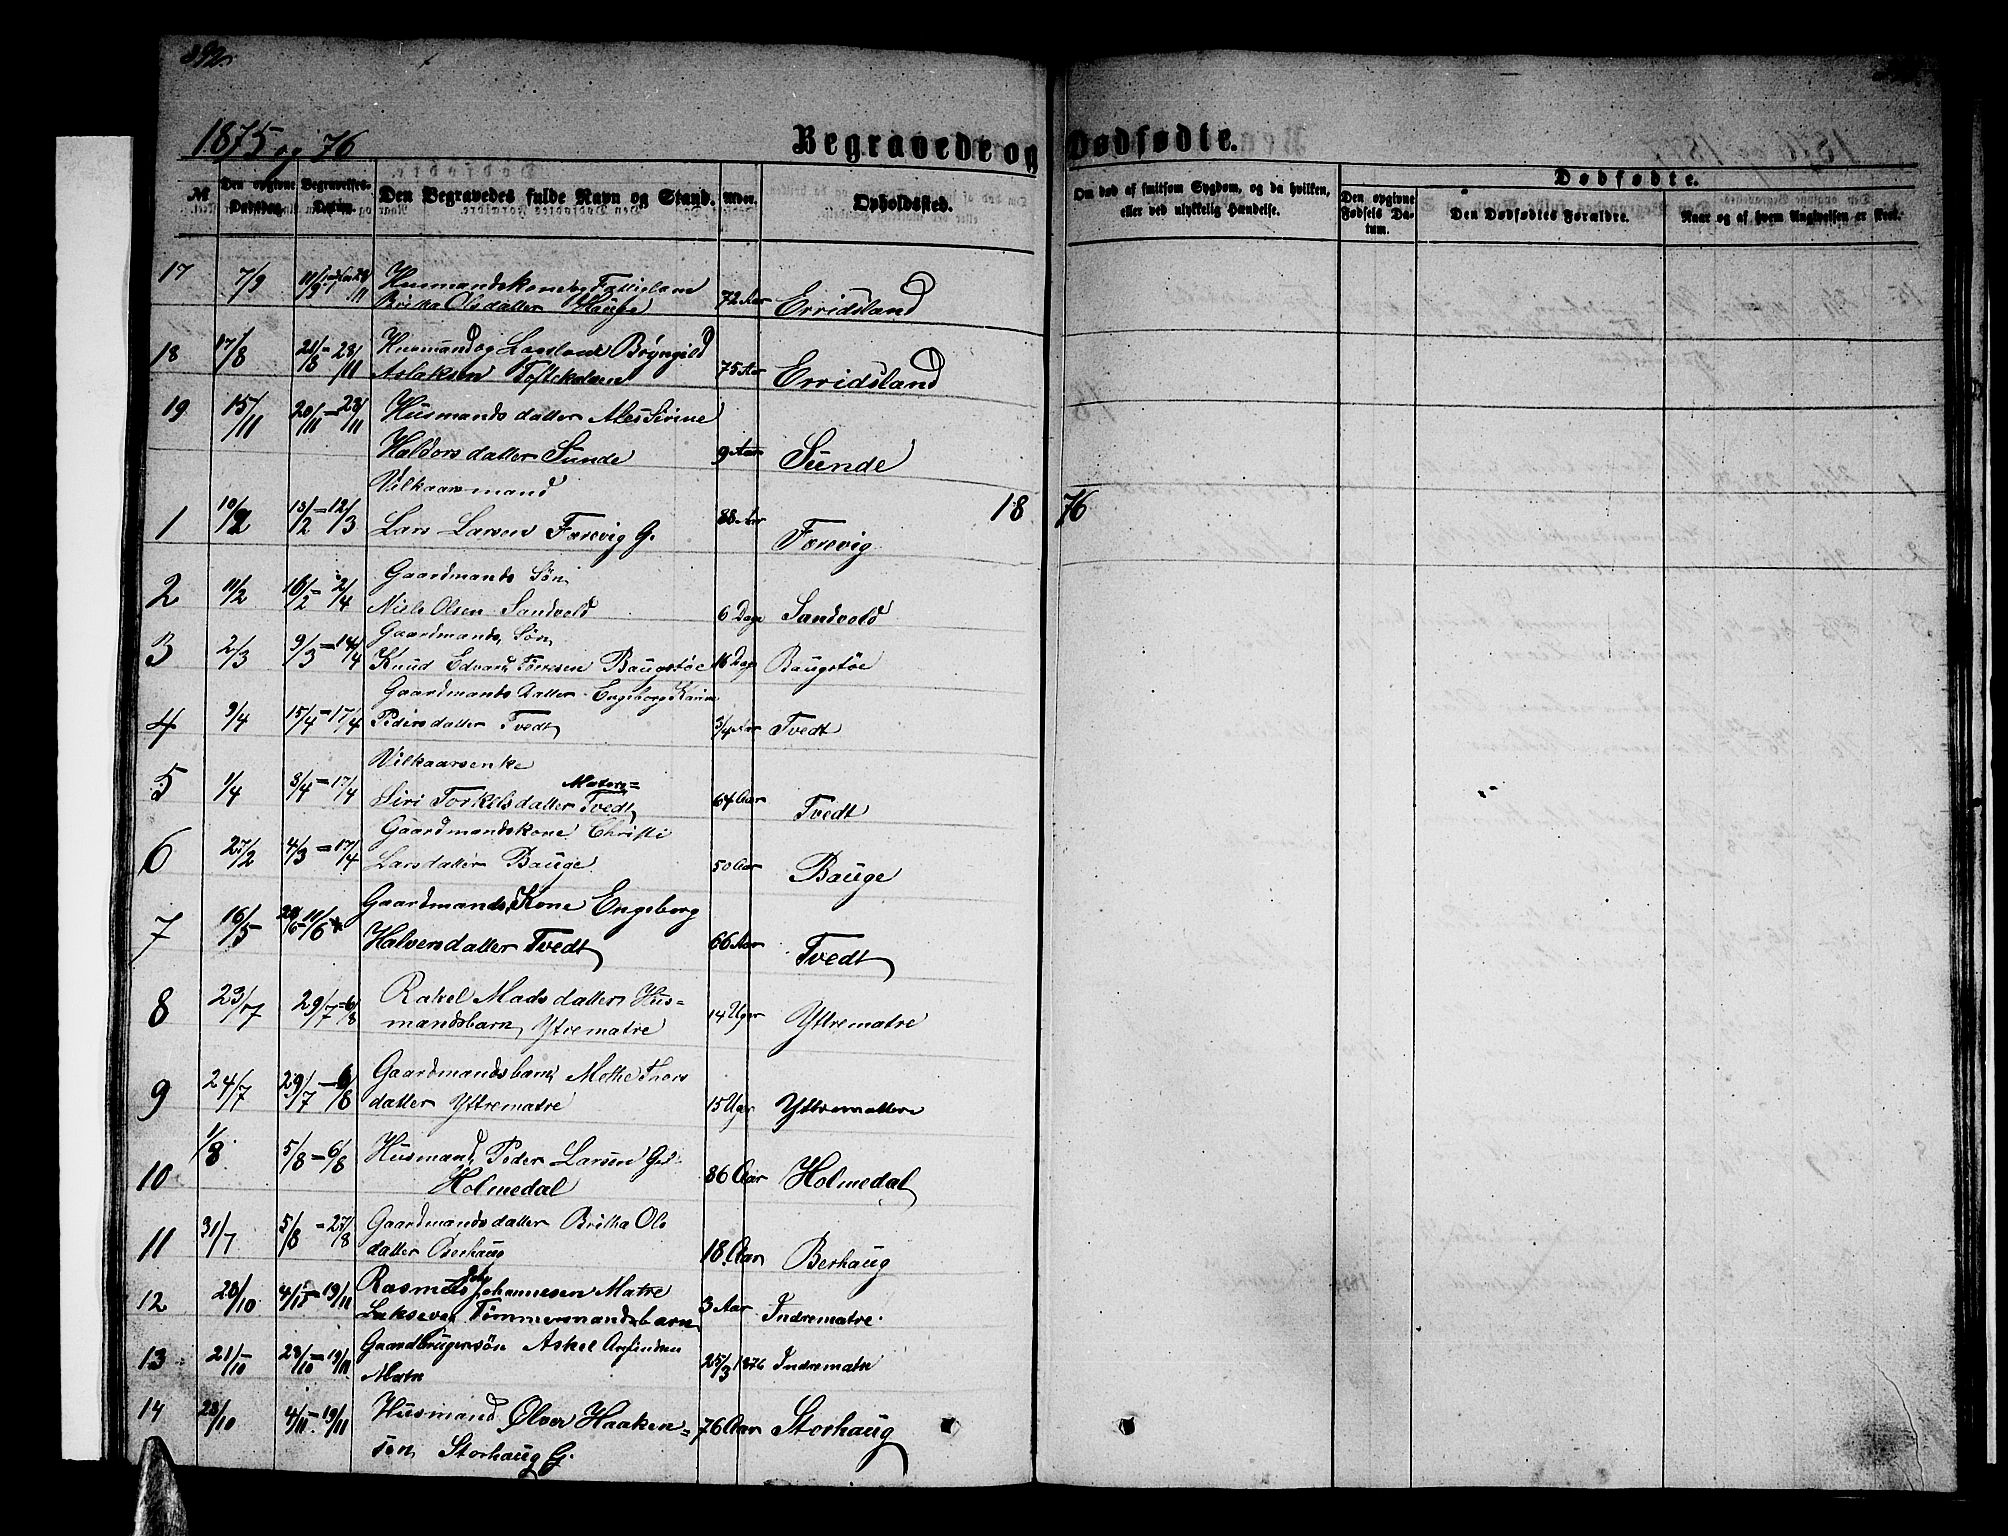 392.
1875 og 76
Begravede og Dødfødte.
№
Den opgivne Dødsdag.
Begravelses-Datum.
Den Begravedes fulde Navn og Stand.
Alder.
Opholdssted.
Om død af smitsom Sygdom, og da hvilken, eller ved ulykkelig Hændelse.
Dødfødte.
Den opgivne Fødsels Datum.
Den Dødfødtes Forældre.
Naar og af hvem Angivelsen er skeet.
17 7/9 Britha Olsdatter Hauge 72 Aar Erridsland
18 17/8 21/8 - 28/11 Husmand og Brynguld
Aslaksen 75 Aar Erridsland
19 15/11 20/11 - 28/11 Husmandsdatter Sirine
Haldorsdatter Sunde 9 Aar Sunde
Vilkaarsmand 1876
1 10/2 13/2 - 12/3 Lars Larsen Færevig G. 88 Aar Færevig
2 11/2 16/2 - 2/4 Gaardmands Søn
Niels Olsen Sandvold 6 Dage Sandvold
3 2/3 9/3 - 14/4 Gaardmands Søn
Knud Edvard Baugstøe 16 Dage Baugstøe
Gaardmands datter Engeborg Karine
4 9/4 15/4 - 17/4 Pedersdatter Tvedt 3/4 Aar Tvedt
Vilkaarsenke
5 1/4 3/4 - 17/4 Siri Torkilsdatter Matre= Tvedt 64 Aar Tvedt
6 27/2 4/3 - 17/4 Gaardmandskone Christi
Larsdatter Bauge 50 Aar Bauge
7 16/5 Gaardmands Kone Engeborg
Halvorsdatter Tvedt 66 Aar Tvedt
8 23/7 29/7 - 6/8 Rakel Madsdatter Hus=
mandsbarn, Ytrematre 14 Uger Yttrematre
9 24/7 29/7 - 6/8 Gaardmandsbarn Mette Thors
datter Yttrematre 15 Uger Yttrematre
10 1/8 5/8 - 6/8 Husmand Peder Larsen
Holmedal 86 Aar Holmedal
11 31/7 5/8 - 27/8 Gaardmandsdatter Britha Ols
datter Berhaug 18 Aar Berhaug
12 28/10 4/11 - 19/11 Rasmus Johannesen Matre
Tømmermandsbarn 3 Aar Indrematre
13 21/10 28/10 - 19/11 Gaardbrugersøn Askel Anfindsen
Matre 25/3 1876 Indrematre
14 28/10 4/11 - 19/11 Husmand Ølver Haaken=
sen Storhaug G. 76 Aar Storhaug